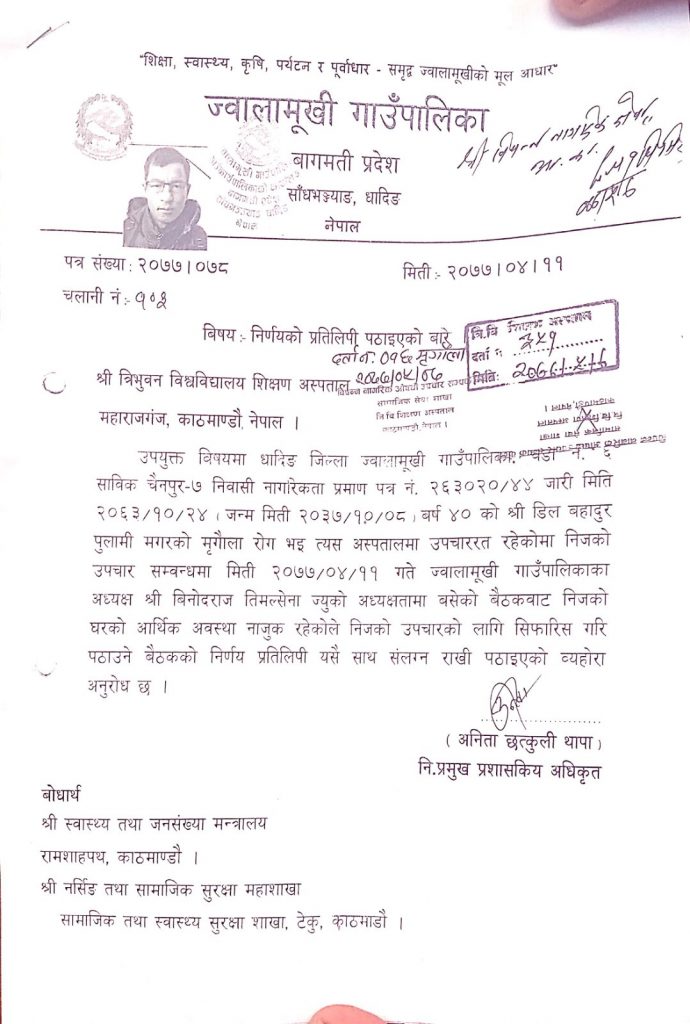 "शिक्षा, स्वास्थ्य, कृषि, पर्यटन र पूर्वाधार - समृद्व ज्वालामूखीको मूल आधार"
ज्वालामूखी गाउँपालिका
बागमती प्रदेश
साँधभञ्ज्याङ, धादिङ
नेपाल
पत्र संख्या: २०७७।०७८
मिती :- २०७७।०४।११
चलानी नं :- १०३
विषय :- निर्णयको प्रतिलिपी पठाइएको बारे
दर्ता नं. ०१६ मृगौला
२०७७/०४/०६
त्रि.वि शिक्षण अस्पताल
दर्ता नं
मिति:
श्री त्रिभुवन विश्वविद्यालय शिक्षण अस्पताल
सामाजिक सेवा शाखा
त्रि वि शिक्षण अस्पताल
काठमाण्डौ, नेपाल ।
महाराजगंज, काठमाण्डौ, नेपाल ।
उपयुक्त विषयमा धादिङ जिल्ला ज्वालामूखी गाउँपालिका वडा नं. ६
साविक चैनपुर-७ निवासी नागरिकता प्रमाण पत्र नं. २६३०२०/४४ जारी मिति
२०६३/१०/२४ ( जन्म मिती २०३७/१०/०८) बर्ष ४० को श्री डिल बहादुर
पुलामी मगरको मृगौला रोग भइ त्यस अस्पतालमा उपचाररत रहेकोमा निजको
उपचार सम्वन्धमा मिती २०७७/०४/११ गते ज्वालामूखी गाउँपालिकाका
अध्यक्ष श्री बिनोदराज तिमल्सेना ज्युको अध्यक्षतामा बसेको बैठकवाट निजको
घरको आर्थिक अवस्था नाजुक रहेकोले निजको उपचारको लागि सिफारिस गरि
पठाउने बैठकको निर्णय प्रतिलिपी यसै साथ संलग्न राखी पठाइएको व्यहोरा
अनुरोध छ ।
( अनिता छत्कुली थापा )
नि.प्रमुख प्रशासकिय अधिकृत
बोधार्थ
श्री स्वास्थ्य तथा जनसंख्या मन्त्रालय
रामशाहपथ, काठमाण्डौ ।
श्री नर्सिङ तथा सामाजिक सुरक्षा महाशाखा
सामाजिक तथा स्वास्थ्य सुरक्षा शाखा, टेकु, काठमाडौ ।